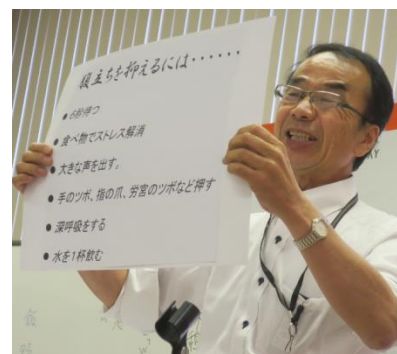 腹立ちを抑えるには・・・・・・
● 6秒待つ
● 食べ物でストレス解消
● 大きな声を出す。
● 手のツボ、指の爪、労宮のツボなど押す
● 深呼吸をする
● 水を1杯飲む